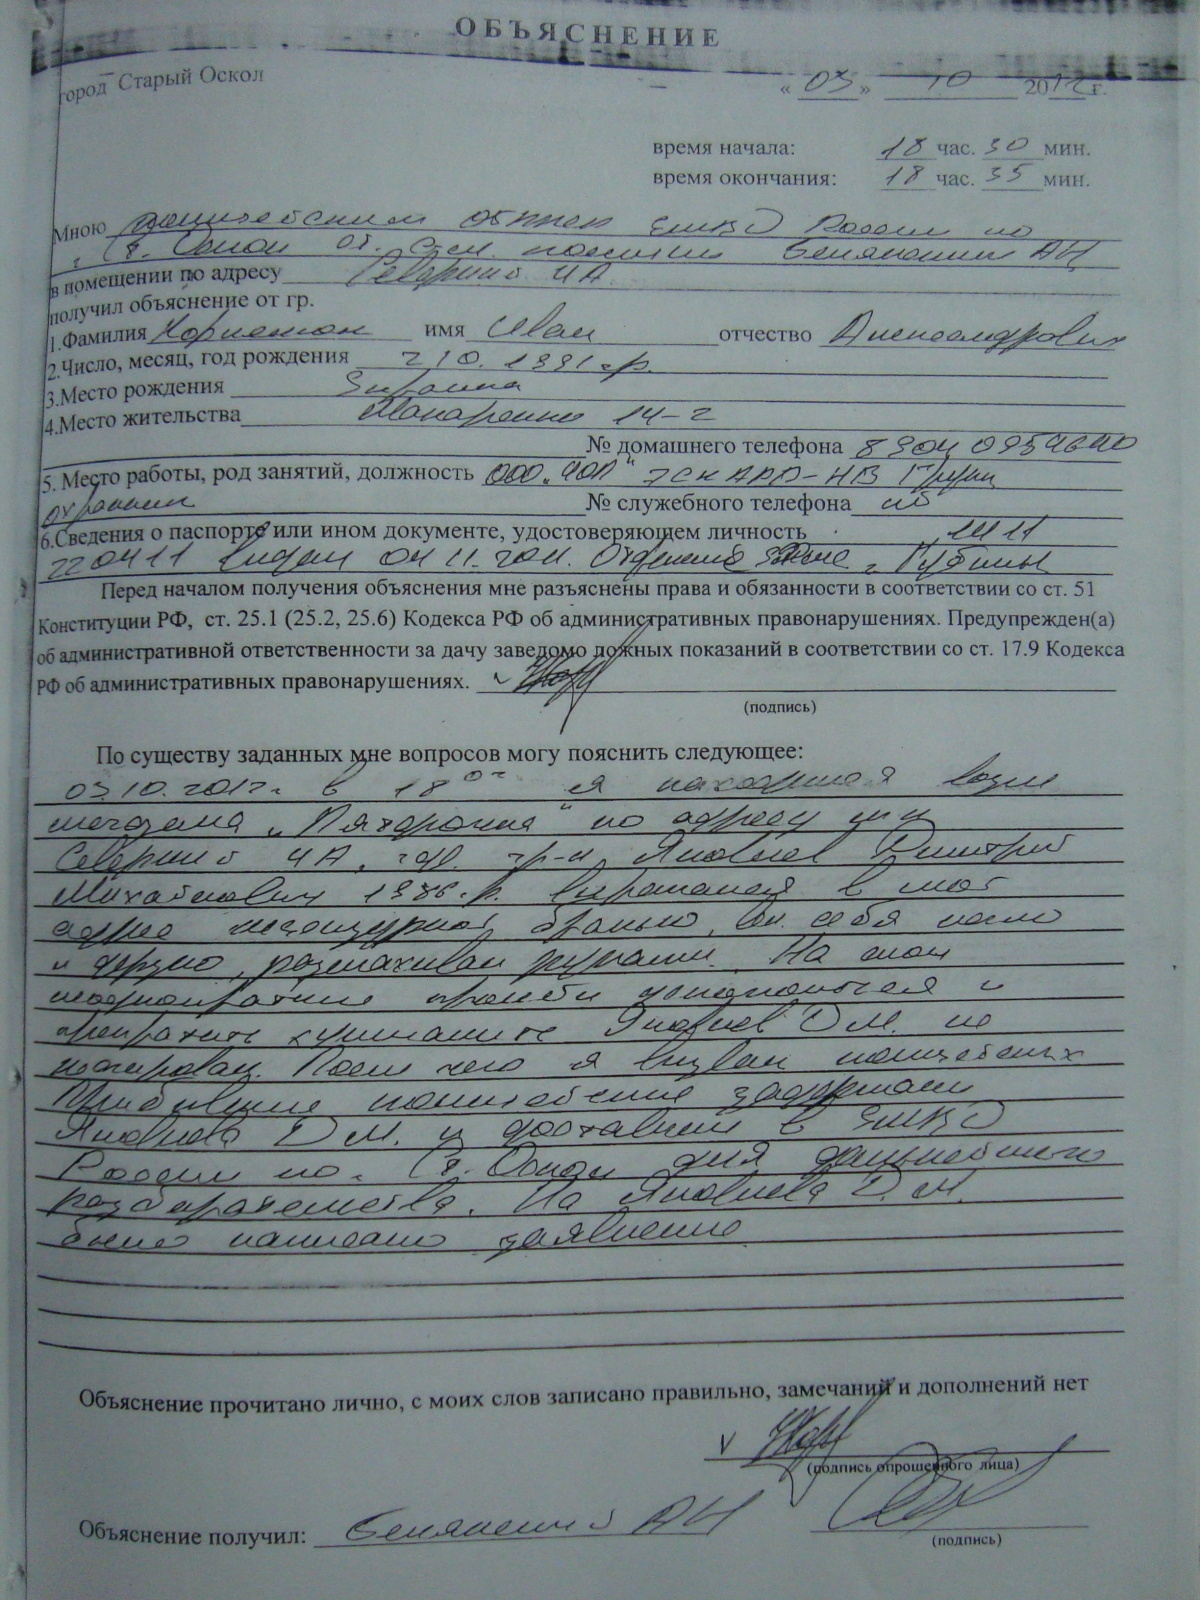 ОБЪЯСНЕНИЕ
город Старый Оскол
« 03 » 10 2012 г.
время начала: 18 час. 30 мин.
время окончания: 18 час. 35 мин.
Мною полицейским УМВД России по
г. Ст. Оскол ст. полиции АН
в помещении по адресу 4А
получил объяснение от гр.
1.Фамилия имя Иван отчество Александрович
2.Число, месяц, год рождения 1991 г.р.
3.Место рождения Украина
4.Место жительства Макаренко 14-2
№ домашнего телефона
5. Место работы, род занятий, должность ООО ЧОП "ЭСКАДО-НВ Групп
охранник № служебного телефона
6.Сведения о паспорте или ином документе, удостоверяющем личность 1411
220411 выдан 04 11. 2011. Отделение г. Губкины
Перед началом получения объяснения мне разъяснены права и обязанности в соответствии со ст. 51
Конституции РФ, ст. 25.1 (25.2, 25.6) Кодекса РФ об административных правонарушениях. Предупрежден(а)
об административной ответственности за дачу заведомо ложных показаний в соответствии со ст. 17.9 Кодекса
РФ об административных правонарушениях.
(подпись)
По существу заданных мне вопросов могу пояснить следующее:
03.10.2012г. в 18 я находился возле
магазина "Пятерочка" по адресу
4А, где гр-н Яковлев Дмитрий
Михайлович 1986 г.р. выражался в мой
адрес нецензурной бранью, вел себя нагло
и дерзко, размахивал руками. На мои
неоднократные просьбы успокоиться и
прекратить хулиганить Яковлев Д.М. не
реагировал. После чего я вызвал полицейских
Прибывшие полицейские задержали
Яковлева Д.М. и доставили в УМВД
России по г. Ст. Оскол для дальнейшего
разбирательства. На Яковлева Д.М.
было написано заявление
Объяснение прочитано лично, с моих слов записано правильно, замечаний и дополнений нет
(подпись опрошенного лица)
Объяснение получил: АН
(подпись)